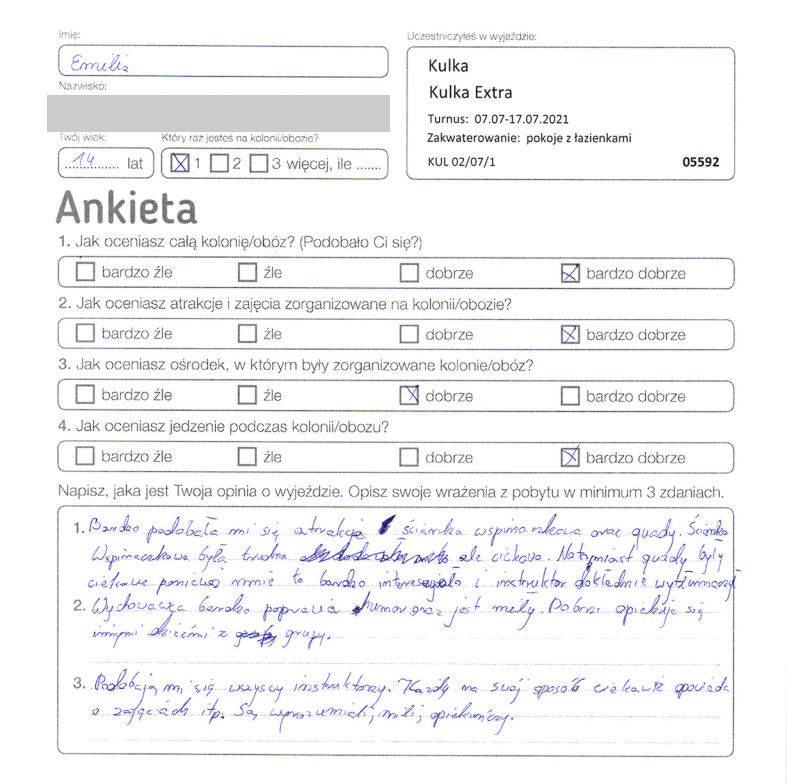 Imię:
Emilia
Nazwisko:
Twój wiek:
14 lat
Który raz jesteś na kolonii/obozie?
1 2 3 więcej, ile .......
Uczestniczyłeś w wyjeździe:
Kulka
Kulka Extra
Turnus: 07.07-17.07.2021
Zakwaterowanie: pokoje z łazienkami
KUL 02/07/1 05592
Ankieta
1. Jak oceniasz całą kolonię/obóz? (Podobało Ci się?)
bardzo źle źle dobrze bardzo dobrze
2. Jak oceniasz atrakcje i zajęcia zorganizowane na kolonii/obozie?
bardzo źle źle dobrze bardzo dobrze
3. Jak oceniasz ośrodek, w którym były zorganizowane kolonie/obóz?
bardzo źle źle dobrze bardzo dobrze
4. Jak oceniasz jedzenie podczas kolonii/obozu?
bardzo źle źle dobrze bardzo dobrze
Napisz, jaka jest Twoja opinia o wyjeździe. Opisz swoje wrażenia z pobytu w minimum 3 zdaniach.
1. Bardzo podobała mi się atrakcja ścianka wspinaczkowa oraz quady. Ścianka
Wspinaczkowa była trudna ale ciekawa. Natomiast quady były
ciekawe ponieważ mnie to bardzo interesowało i instruktor dokładnie wytłumaczył
2. Wychowawca bardzo poprawia humor oraz jest miły. Dobrze opiekuje się
innymi dziećmi z grupy.
3. Podobają mi się wszyscy instruktorzy. Każdy na swój sposób ciekawie opowiada
o zajęciach itp. Są wyrozumiali, mili, opiekuńczy.